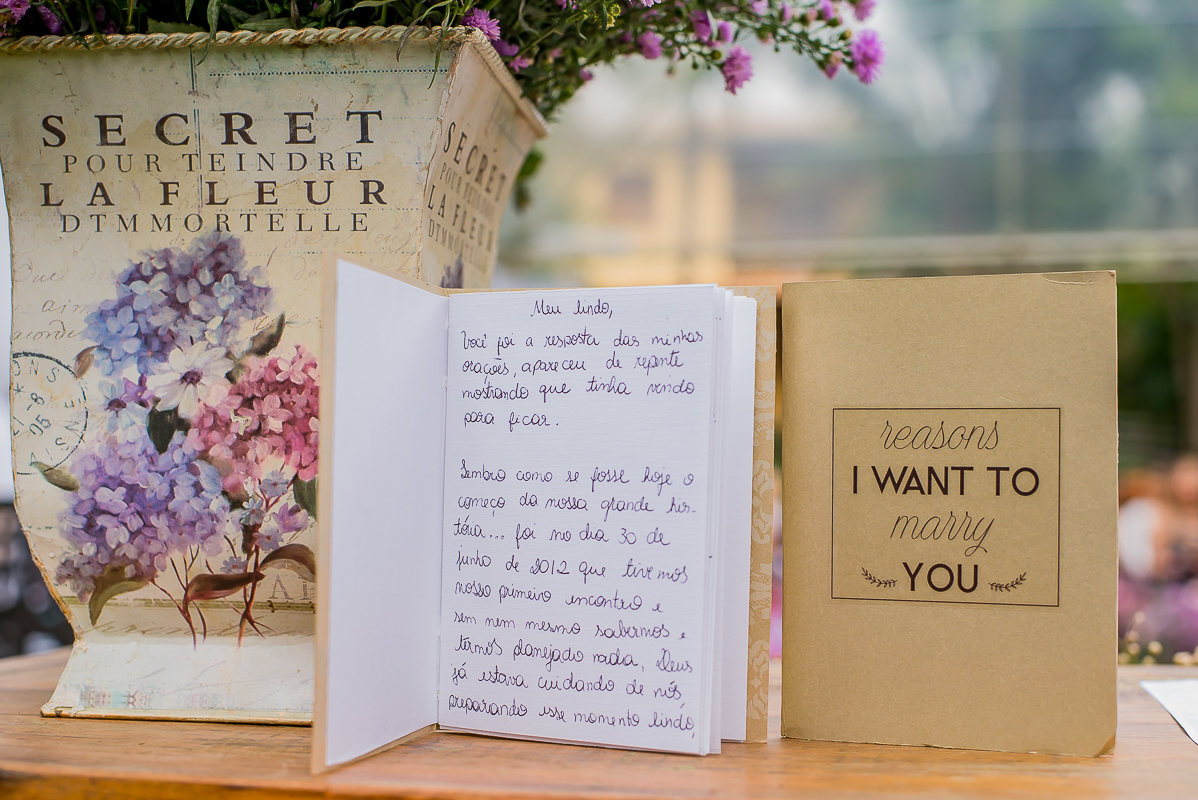 SECRET
POUR TEINDRE
LA FLEUR
DTMMORTELLE
SECRET
LA FLEUR
Meu lindo,
Você foi a resposta das minhas
orações, apareceu de repente
mostrando que tinha vindo
para ficar.
Lembro como se fosse hoje o
começo da nossa grande his-
tória... foi no dia 30 de
junho de 2012 que tivemos
nosso primeiro encontro e
sem nem mesmo sabermos e
termos planejado nada, Deus
já estava cuidando de nós
preparando esse momento lindo,
reasons
I WANT TO
marry
YOU